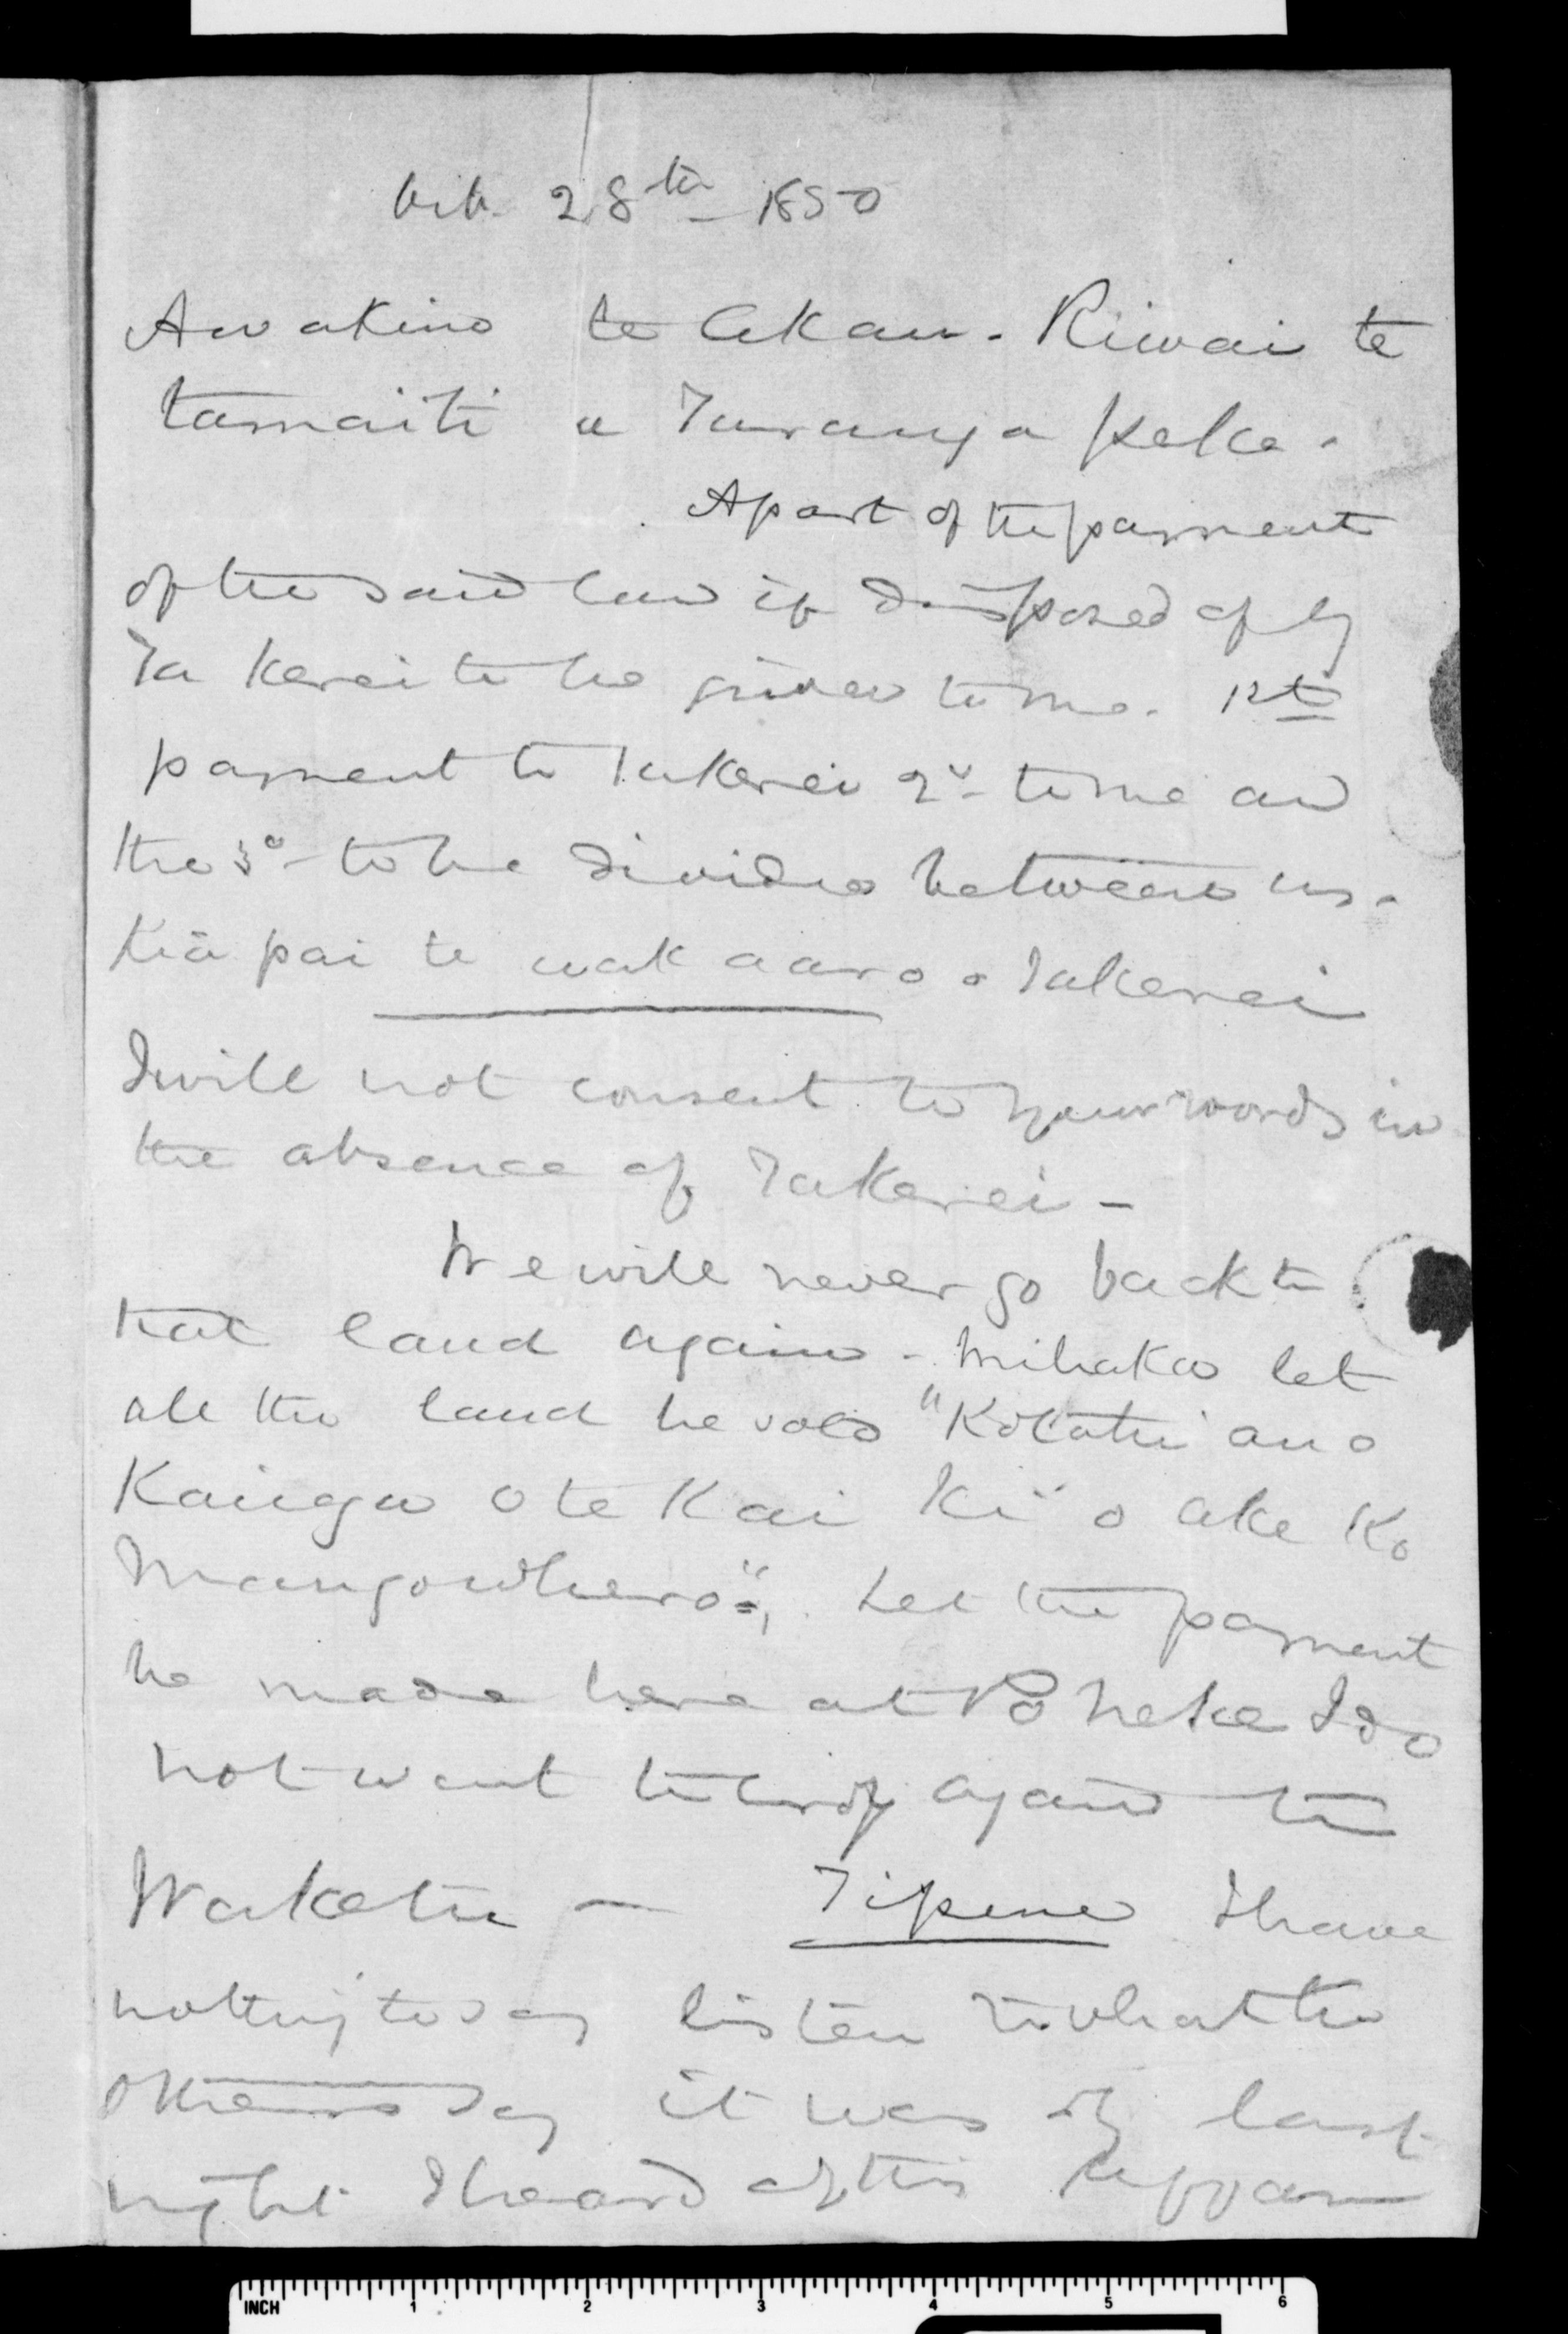 28th 1850
Awakino te Akau. Riwai te
tamaiti a Turanga peke.
A part of the payment
of the said land if disposed of by
Ta Kerei to be given to me. 1st
payment to Takerei 2d to me and
the 3d to be divided between us.
Kia pai te wakaaro o Takerei
I will not consent to your words in
the absence of Takerei -
We will never go back to
that land again - Mihaka let
all the land be sold "Ko tatu ano
Kainga o te Kai Ki o ake Ko
Mangowhero", Let the payment
be made here at Po neke I do
not want to again to
Waketu - Tipene I have
nothing to say listen to what the
others say it was only last
night I heard of this affair
INCH 1 2 3 4 5 6